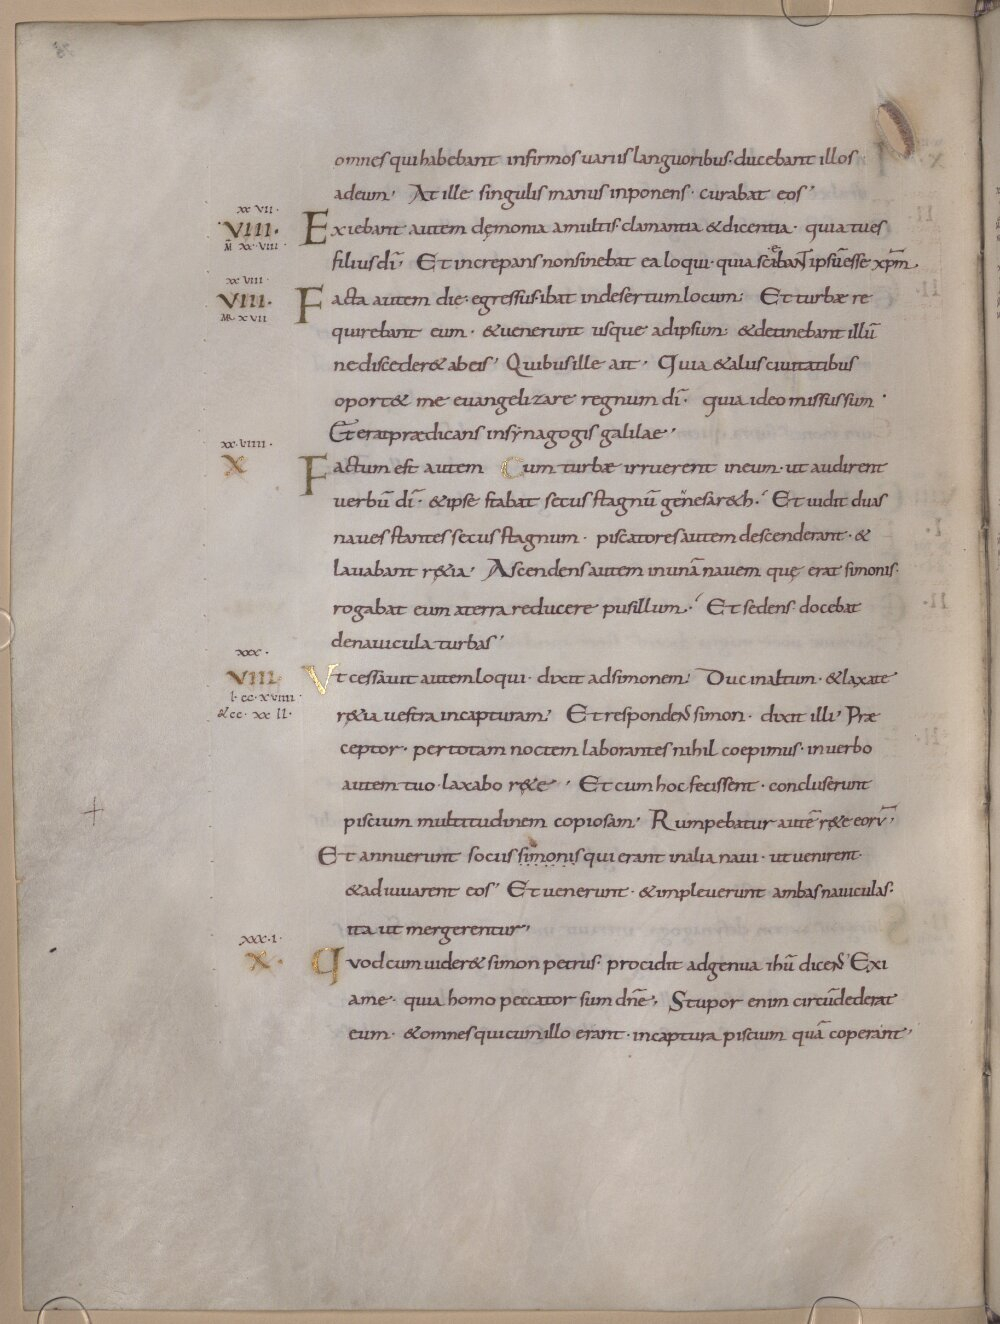 omnes qui habebant infirmos variis languoribus· ducebant illos
ad eum· At ille singulis manus inponens· curabat eos·
xx·vii·
·VIII·
M̄ xx·viii·
Exiebant autem dęmonia a multis· clamantia &dicentia· quia tu es
filius dī· Et increpans non sinebat ea loqui· quia sciebant ipsū esse xp̄m
xx·viii·
VIII·
MR· xvii
Facta autem die· egressus ibat in desertum locum· Et turbæ re
quirebant eum· &venerunt usque ad ipsum· &detinebant illū
ne disceder& ab eis· Quibus ille ait· Quia &aliis civitatibus
oport& me evangelizare regnum dī· quia ideo missus sum·
Et erat prædicans in synagogis galilae·
xx·viiii·
X
Factum est autem Cum turbæ irruerent in eum· ut audirent
verbū dī· &ipse stabat secus stagnū genesar&h· Et vidit duas
naves stantes secus stagnum· piscatores autem descenderant· &
lavabant r&ia· Ascendens autem in unā navem quę erat simonis·
rogabat eum a terra reducere pusillum· Et sedens· docebat
de navicula turbas·
xxx·
VIII·
I· cc·xviiii·
&cc· xx ii·
Vt cessavit autem loqui· dixit ad simonem· Duc in altum· &laxate
r&ia vestra in capturam· Et respondens simon· dixit illi· Præ
ceptor· per totam noctem laborantes nihil coepimus· in verbo
autem tuo· laxabo r&e· Et cum hoc fecissent· concluserunt
piscium multitudinem copiosam· Rumpebatur autē r&e eorū·
Et annuerunt sociis simonis qui erant in alia navi· ut venirent·
&adiuvarent eos· Et venerunt· &impleverunt ambas naviculas·
ita ut mergerentur·
xxx·i·
X·
Quod cum vider& simon petrus· procidit ad genua ihū dicens Exi
a me· quia homo peccator sum dn̄e· Stupor enim circūdederat
eum· &omnes qui cum illo erant· in captura piscium quā coperant·